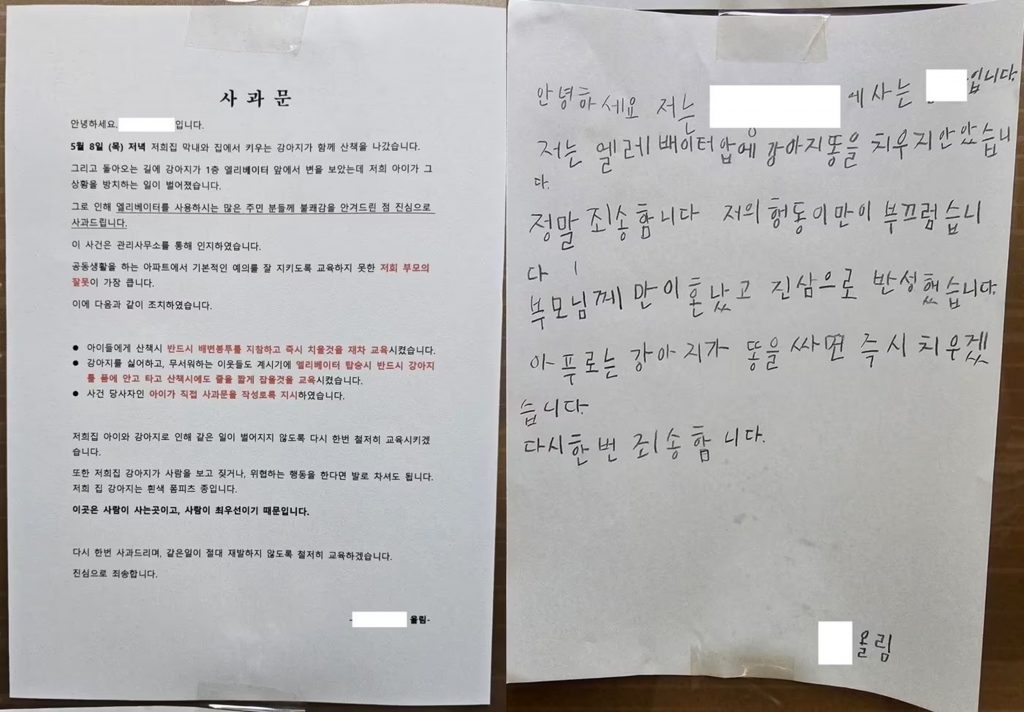 사 과 문
안녕하세요. 입니다.
5월 8일 (목) 저녁 저희집 막내와 집에서 키우는 강아지가 함께 산책을 나갔습니다.
그리고 돌아오는 길에 강아지가 1층 엘리베이터 앞에서 변을 보았는데 저희 아이가 그
상황을 방치하는 일이 벌어졌습니다.
그로 인해 엘리베이터를 사용하시는 많은 주민 분들께 불쾌감을 안겨드린 점 진심으로
사과드립니다.
이 사건은 관리사무소를 통해 인지하였습니다.
공동생활을 하는 아파트에서 기본적인 예의를 잘 지키도록 교육하지 못한 저희 부모의
잘못이 가장 큽니다.
이에 다음과 같이 조치하였습니다.
● 아이들에게 산책시 반드시 배변봉투를 지참하고 즉시 치울것을 재차 교육시켰습니다.
● 강아지를 싫어하고, 무서워하는 이웃들도 계시기에 엘리베이터 탑승시 반드시 강아지
를 품에 안고 타고 산책시에도 줄을 짧게 잡을것을 교육시켰습니다.
● 사건 당사자인 아이가 직접 사과문을 작성토록 지시하였습니다.
저희집 아이와 강아지로 인해 같은 일이 벌어지지 않도록 다시 한번 철저히 교육시키겠
습니다.
또한 저희집 강아지가 사람을 보고 짖거나, 위협하는 행동을 한다면 발로 차셔도 됩니다.
저희 집 강아지는 흰색 폼피츠 종입니다.
이곳은 사람이 사는곳이고, 사람이 최우선이기 때문입니다.
다시 한번 사과드리며, 같은일이 절대 재발하지 않도록 철저히 교육하겠습니다.
진심으로 죄송합니다.
- 올림-
안녕하세요 저는 에사는 입니다.
저는 엘레베이터앞에 강아지똥을 치우지안았습니
다.
정말 죄송함니다 저의행동이만이 부끄럽습니
다
부모님께 만이혼났고 진삼으로 반성했습니다.
아푸로는 강아지가 똥을 싸면 즉시 치우겠
습니다.
다시한번 죄송함니다.
올림